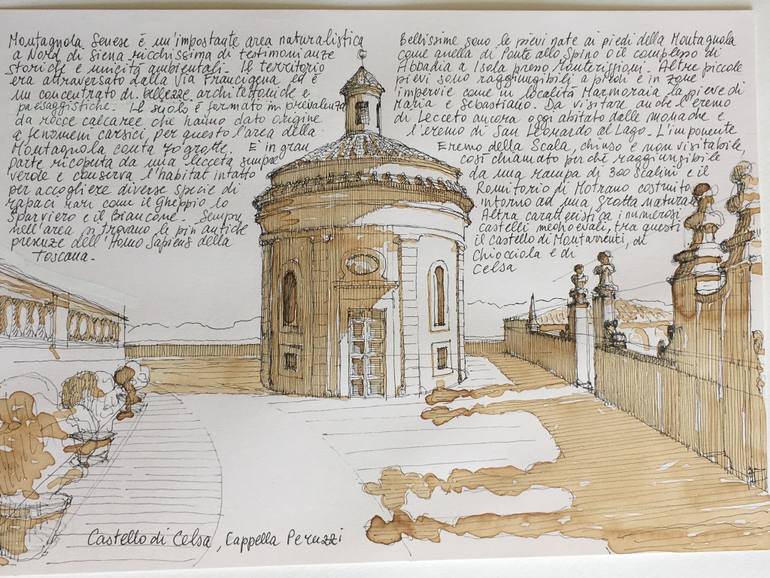 Montagnola Senese è un'impostante area naturalistica
a Nord di Siena ricchissima di testimonianze
storiche e unicità ambientali. Il territorio
era attraversato dalla Via Francigena ed è
un concentrato di bellezze architettoniche e
paesaggistiche. Il suolo è formato in prevalenza
da rocce calcaree che hanno dato origine
a fenomeni carsici, per questo l'area della
Montagnola conta 70 grotte. E' in gran
parte ricoperta da una lecceta sempre
verde e conserva l'habitat intatto
per accogliere diverse specie di
rapaci rari come il Gheppio lo
Sparviero e il Biancone. Sempre
nell'area si trovano le più antiche
presenze dell'Homo Sapiens della
Toscana.
Bellissime sono le pievi nate ai piedi della Montagnola
come quella di Ponte allo Spino o il complesso di
Abbadia a Isola presso Monteriggioni. Altre piccole
pievi sono raggiungibili a piedi e in zone
impervie come in località Marmoraia la pieve di
Maria e Sebastiano. Da visitare anche l'eremo
di Lecceto ancora oggi abitato delle monache e
l'eremo di San Leonardo al Lago. L'imponente
Eremo della Scala, chiuso e non visitabile,
così chiamato perchè raggiungibile
da una rampa di 300 scalini e il
Romitorio di Motrano costruito
intorno ad una grotta naturale.
Altra caratteristica i numerosi
castelli medioevali, tra questi
il castello di Montarrenti, di
Chiocciola e di
Celsa
Castello di Celsa, Cappella Peruzzi